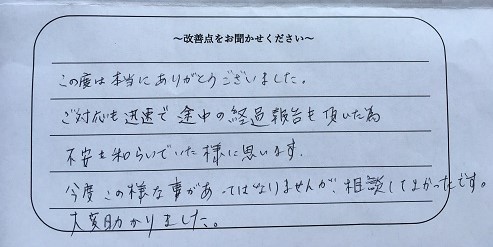 ～改善点をお聞かせください～
この度は本当にありがとうございました。
ご対応も迅速で途中の経過報告も頂いた為
不安も和らいでいた様に思います。
今度この様な事があってはなりませんが、相談してよかったです。
大変助かりました。